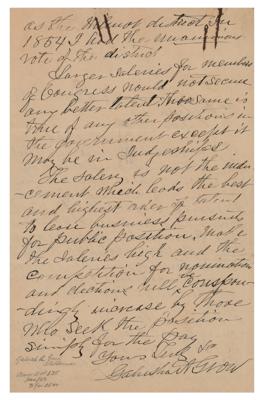 as the Wilmot district. In
1854 I had the unanimous
vote of the district
Larger Salaries for members
of Congress would not secure
any better talent. The same is
true of any other positions in
the government except it
may be in Judgeships.
The Salary is not the indu-
cement which leads the best
and highest order of talent
to leave business pursuits
for public position. Make
the Salaries high and the
competition for nominations
and elections will correspon-
dingly increase by those
who seek the position
simply for the pay
Yours truly
Galusha A Grow
Galusha A. Grow